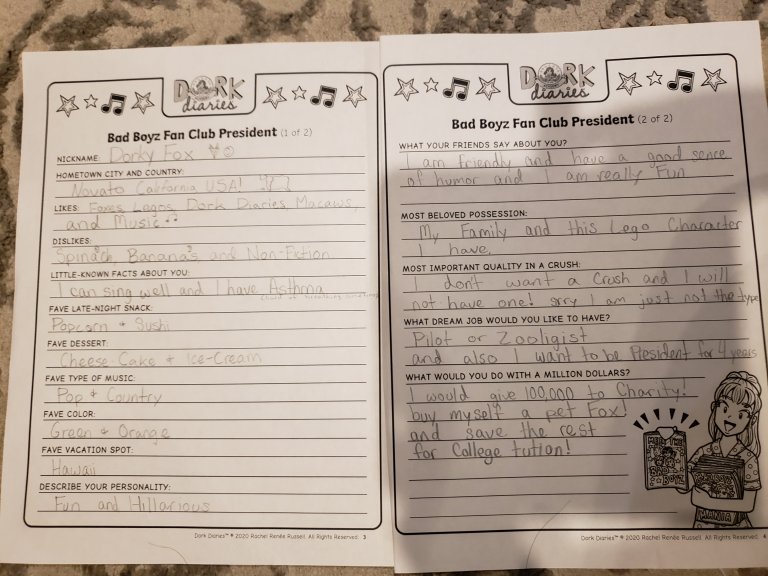 DORK
diaries
Bad Boyz Fan Club President (1 of 2)
NICKNAME: Dorky Fox
HOMETOWN CITY AND COUNTRY:
Novato California USA!
LIKES: Foxes, Legos, Dork Diaries, Macaws,
and Music
DISLIKES:
Spinach, Bananas, and Non-Fiction
LITTLE-KNOWN FACTS ABOUT YOU:
I can sing well and I have Asthma
FAVE LATE-NIGHT SNACK:
Popcorn & Sushi
FAVE DESSERT:
Cheese-Cake & Ice-Cream
FAVE TYPE OF MUSIC:
Pop & Country
FAVE COLOR:
Green & Orange
FAVE VACATION SPOT:
Hawaii
DESCRIBE YOUR PERSONALITY:
Fun and Hillarious
Dork Diaries™ © 2020 Rachel Renée Russell. All Rights Reserved. 3
DORK
diaries
Bad Boyz Fan Club President (2 of 2)
WHAT YOUR FRIENDS SAY ABOUT YOU?
I am friendly and have a good sence
of humor and I am really Fun
MOST BELOVED POSSESSION:
My Family and this Lego Character
I have.
MOST IMPORTANT QUALITY IN A CRUSH:
I don't want a Crush and I will
not have one! srry I am just not the type
WHAT DREAM JOB WOULD YOU LIKE TO HAVE?
Pilot or Zooligist
and also I want to be President for 4 years
WHAT WOULD YOU DO WITH A MILLION DOLLARS?
I would give 100,000 to Charity!
buy myself a pet Fox!
and save the rest
for College tution!
MEET THE
BAD
BOYZ
MANIA
Dork Diaries™ © 2020 Rachel Renée Russell. All Rights Reserved. 4